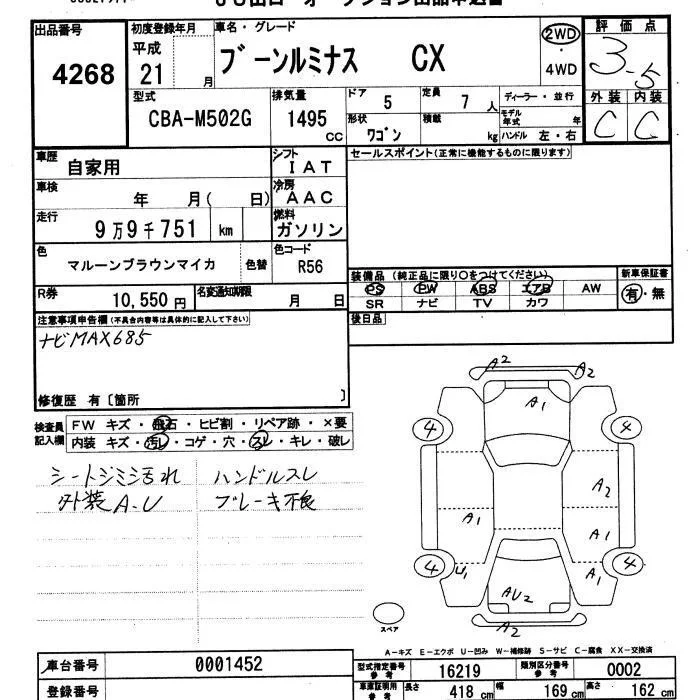 出品番号
4268
初度登録年月
平成
21 月
車名・グレード
ブーンルミナス CX
2WD
・
4WD
評価点
3.5
外装 内装
C C
型式
CBA-M502G
排気量
1495 CC
ドア 5
定員 7 人
形状 ワゴン
積載 kg
ディーラー・並行
モデル年式 年
ハンドル 左・右
車歴
自家用
シフト
IAT
車検
年 月( 日)
冷房
AAC
走行
9万9千751 km
燃料
ガソリン
色
マルーンブラウンマイカ
色替
色コード
R56
R券
10,550 円
名変通知期限
月 日
セールスポイント(正常に機能するものに限ります)
装備品(純正品に限り○をつけてください)
新車保証書
PS PW ABS エアB AW
SR ナビ TV カワ
有・無
後日品
注意事項申告欄(不具合内容等は具体的に記入して下さい)
ナビMAX685
修復歴 有〔箇所 〕
検査員
記入欄
FW キズ・飛石・ヒビ割・リペア跡・×要
内装 キズ・汚レ・コゲ・穴・スレ・キレ・破レ
シートシミ汚れ ハンドルスレ
外装A-U ブレーキ不良
A2 A2
A1
4 4
A2
A1 A1
4 U1 A1 4
AU2
A2
スペア
A-キズ E-エクボ U-凹み W-補修跡 S-サビ C-腐食 XX-交換済
車台番号
0001452
登録番号
型式指定番号
参考
16219
類別区分番号
参考
0002
車庫証明用
参考
長さ 418 cm 幅 169 cm 高さ 162 cm